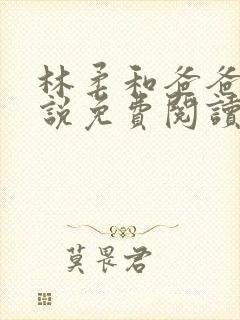 林柔和爸爸
說免費閱讀
莫畏君